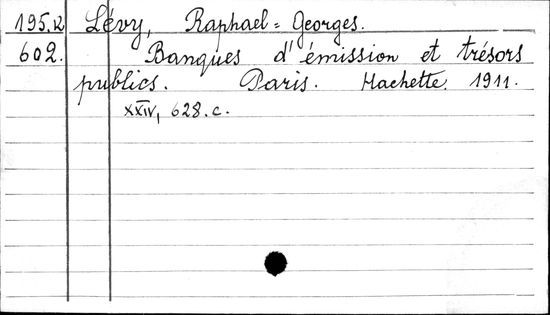 195.12 Lévy, Raphael=Georges.
602. Banques d'émission et trésors
publics. Paris. Hachette. 1911.
XXIV, 628.c.